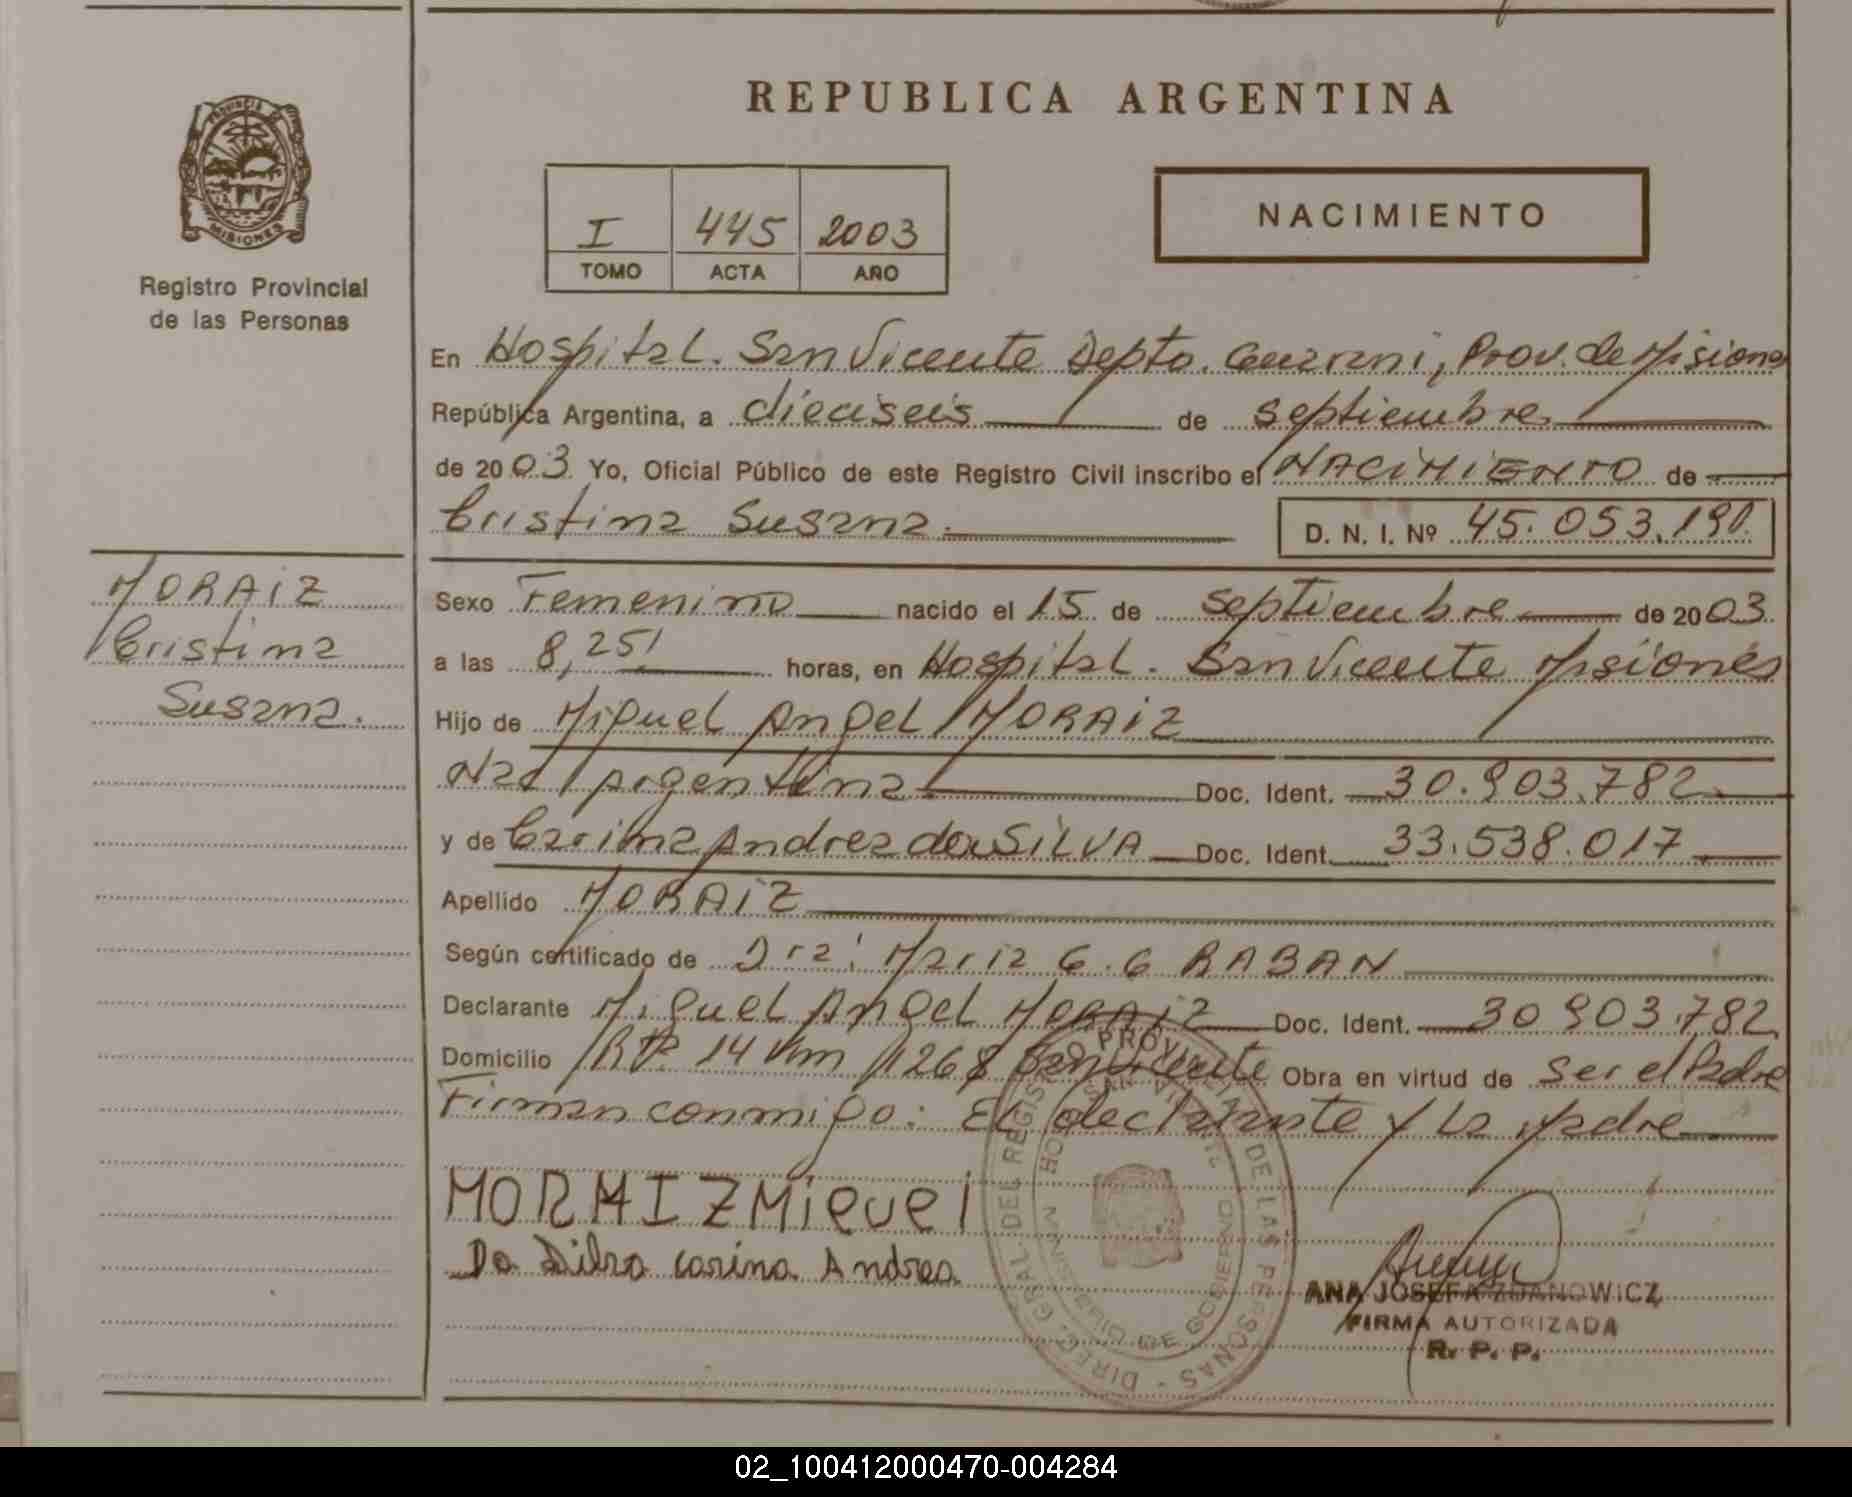 REPUBLICA ARGENTINA
PROVINCIA DE
MISIONES
Registro Provincial
de las Personas
I 445 2003
TOMO ACTA AÑO
NACIMIENTO
En Hospital. San Vicente Depto. Guarani, Prov. de Misiones
República Argentina, a dieciseis de septiembre
de 2003 Yo, Oficial Público de este Registro Civil inscribo el NACIMIENTO de
Cristina Susana. D. N. I. Nº 45.053.190.
MORAIZ
Cristina
Susana.
Sexo Femenino nacido el 15 de septiembre de 2003
a las 8,25' horas, en Hospital. San Vicente Misiones
Hijo de Miguel Angel MORAIZ
Nac Argentina Doc. Ident. 30.903.782
y de Carina Andrea da SILVA Doc. Ident. 33.538.017
Apellido MORAIZ
Según certificado de Dra: Maria G. G RABAN
Declarante Miguel Angel MORAIZ Doc. Ident. 30903.782
Domicilio 14 km 1268 San Vicente Obra en virtud de ser el Padre
Firman conmigo: El declarante y La Madre
MORAIZ Miguel
Da Silva Carina Andrea
ANA JOSEFA ZDANOWICZ
FIRMA AUTORIZADA
R. P. P.
DIREC. GRAL. DEL REGISTRO PROVINCIAL DE LAS PERSONAS
02_100412000470-004284